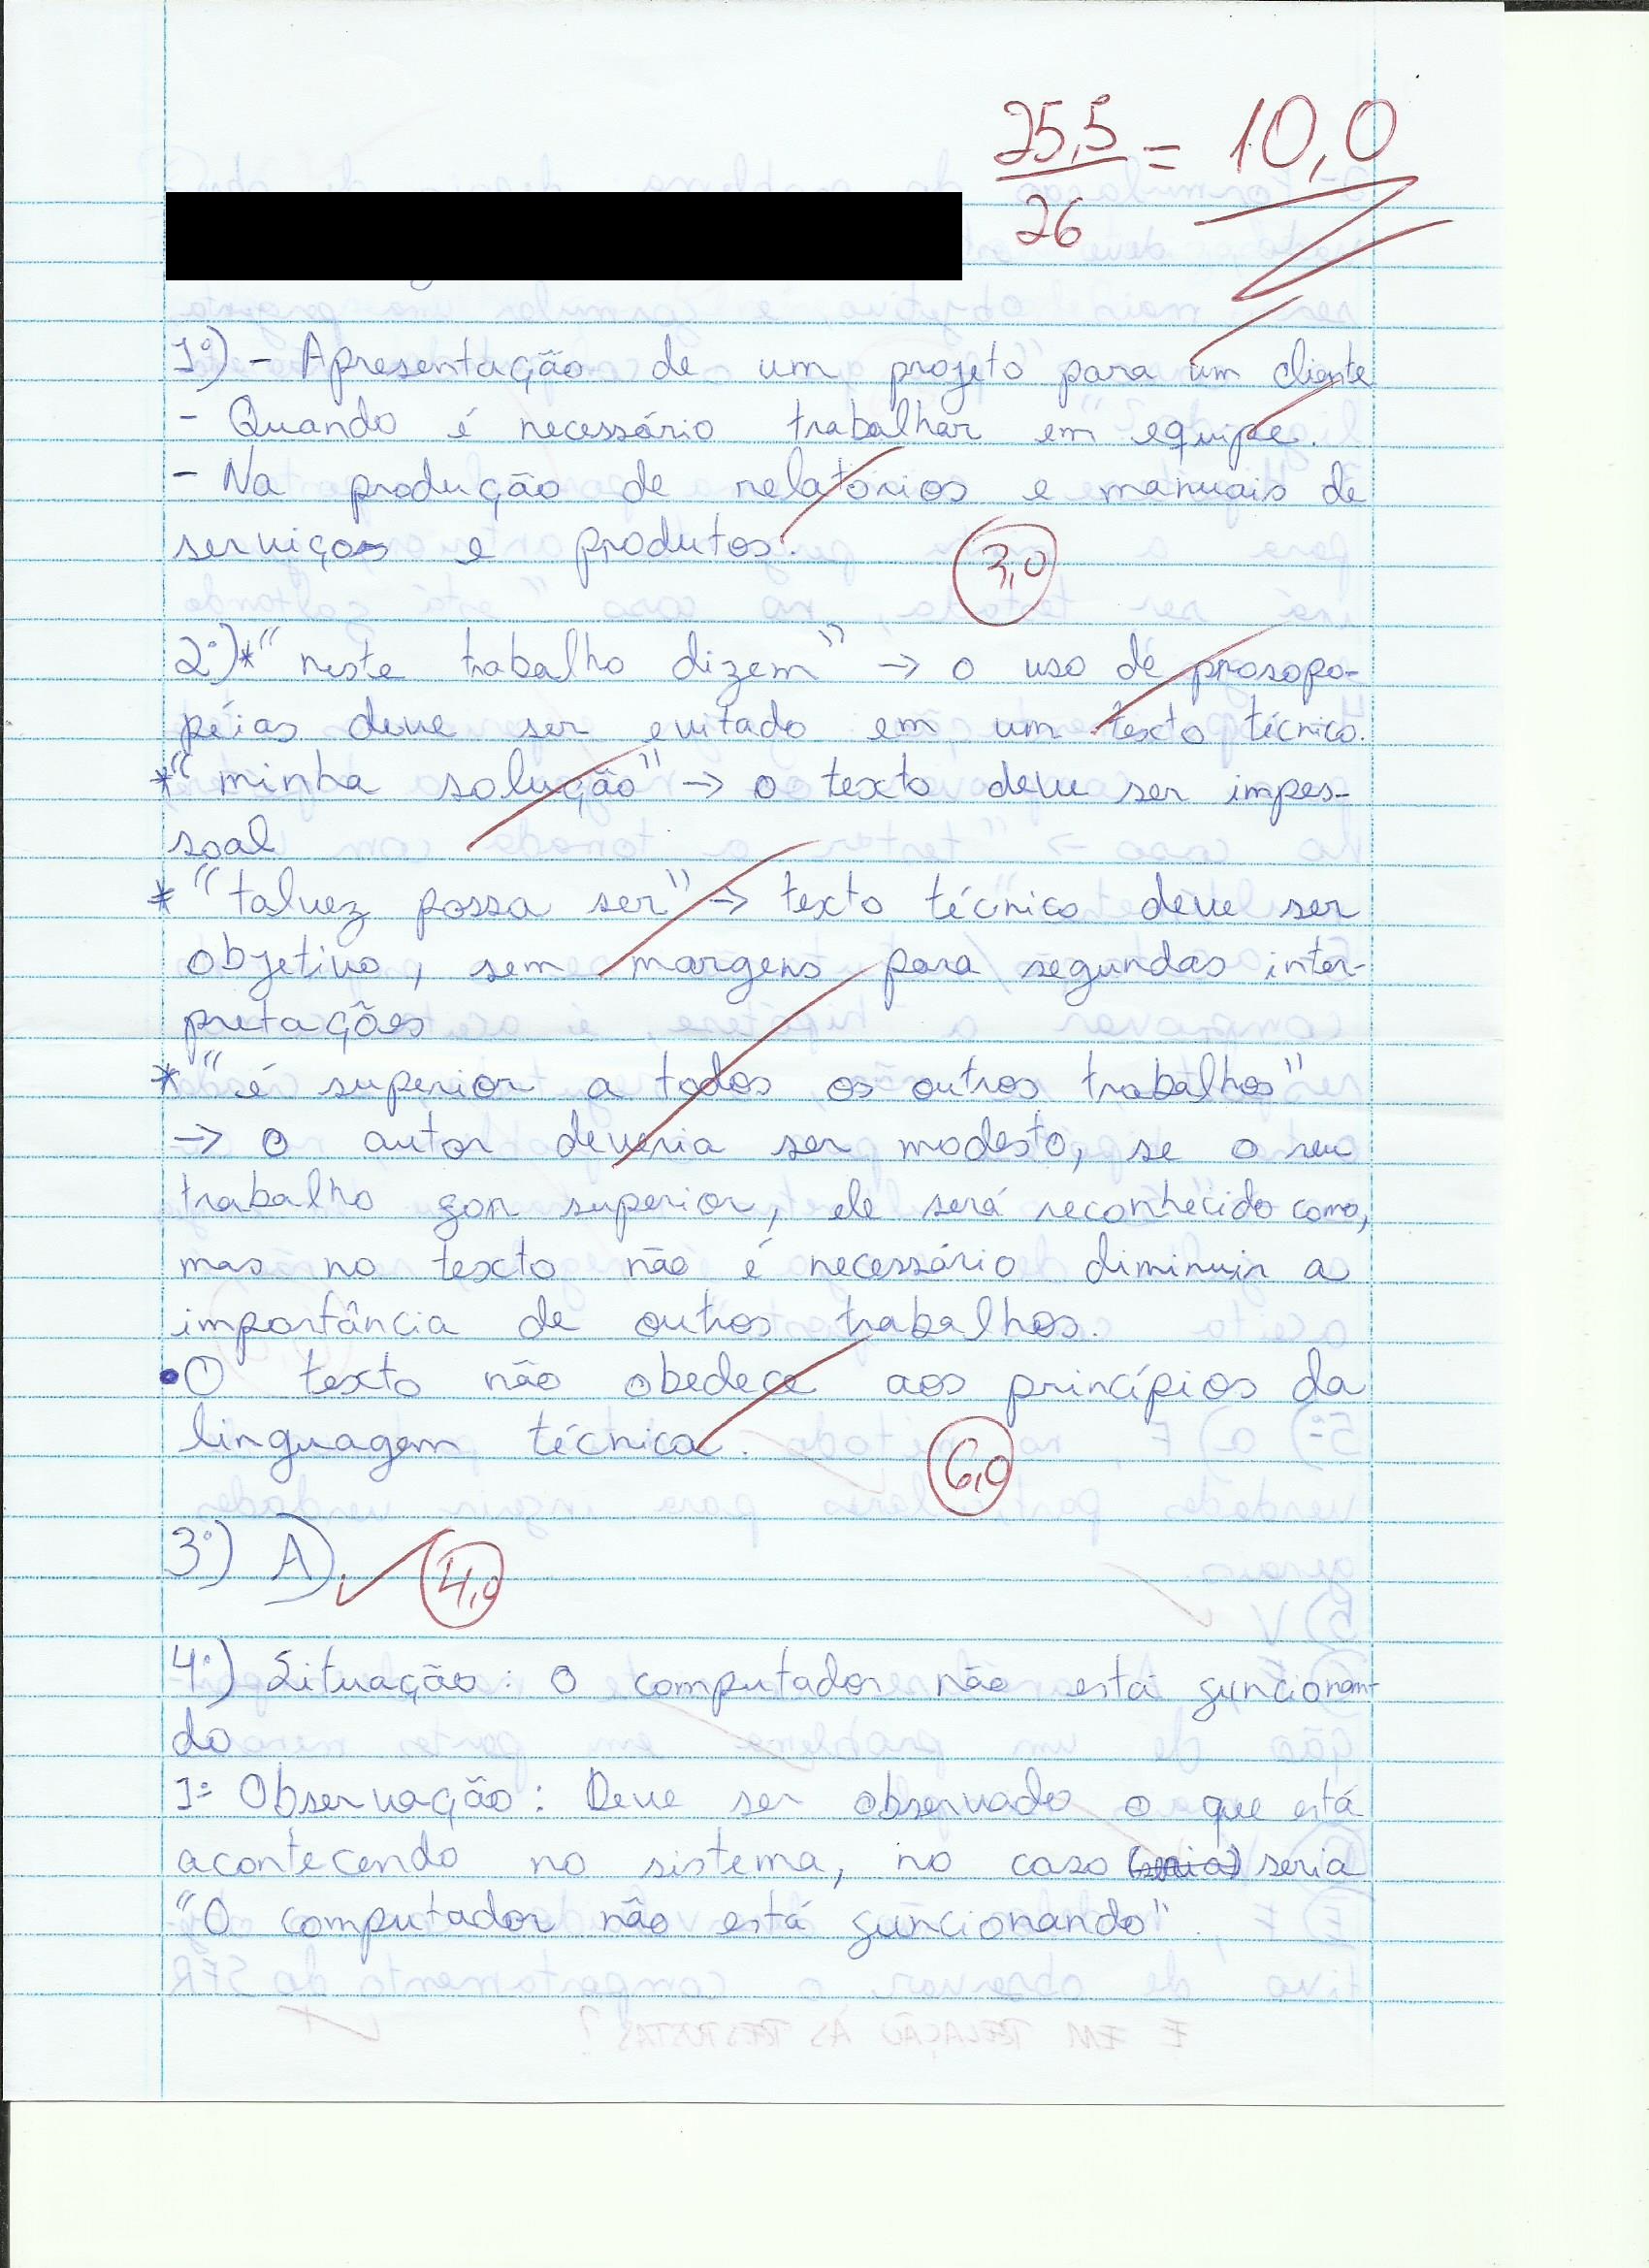 25,5 = 10,0
26
1º) - Apresentação de um projeto para um cliente
- Quando é necessário trabalhar em equipe.
- Na produção de relatórios e manuais de
serviços e produtos.
3,0
2º) * "neste trabalho dizem" → o uso de prosopo-
péias deve ser evitado em um texto técnico.
* "minha solução" → o texto deve ser impes-
soal
* "talvez possa ser" → texto técnico deve ser
objetivo, sem margens para segundas inter-
pretações
* "é superior a todos os outros trabalhos"
→ O autor deveria ser modesto, se o seu
trabalho for superior, ele será reconhecido como,
mas no texto não é necessário diminuir a
importância de outros trabalhos.
• O texto não obedece aos princípios da
linguagem técnica.
6,0
3º) A)
4,0
4º) Situação: O computador não está funcionan-
do
1º Observação: Deve ser observado o que está
acontecendo no sistema, no caso (seria) seria
"O computador não está funcionando".